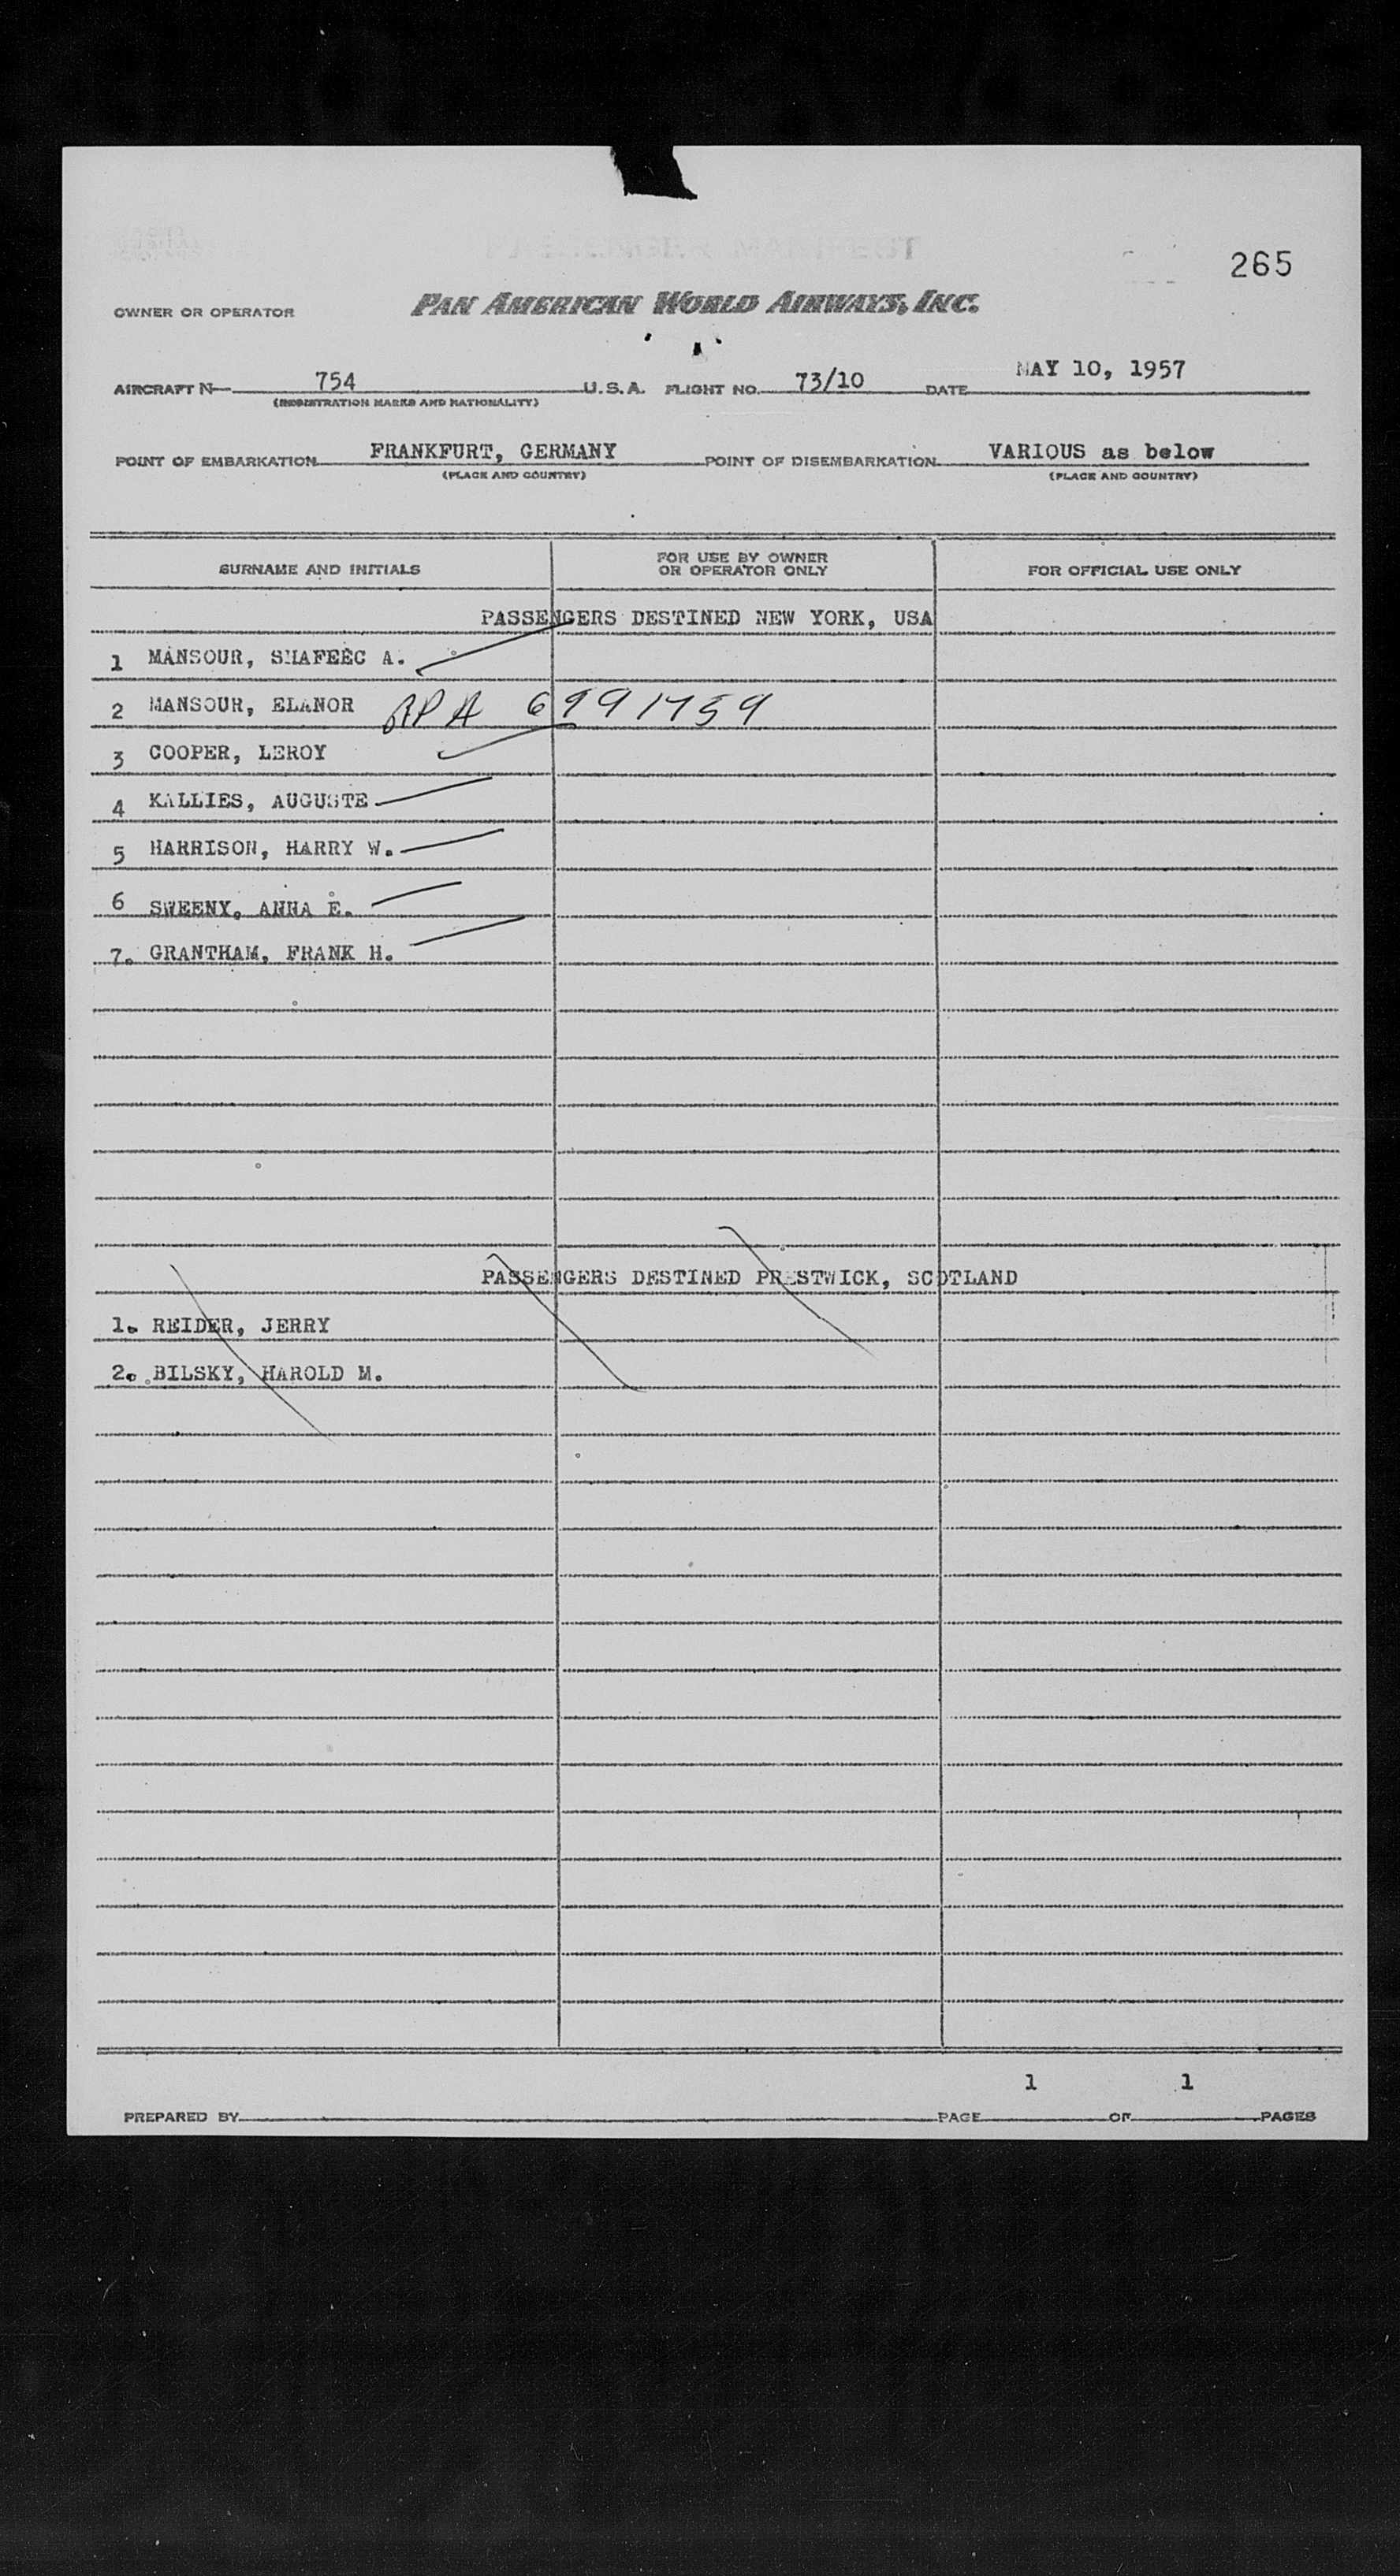 265
OWNER OR OPERATOR PAN AMERICAN WORLD AIRWAYS, INC.
AIRCRAFT N— 754 U.S.A. FLIGHT NO. 73/10 DATE MAY 10, 1957
(REGISTRATION MARKS AND NATIONALITY)
POINT OF EMBARKATION FRANKFURT, GERMANY POINT OF DISEMBARKATION VARIOUS as below
(PLACE AND COUNTRY) (PLACE AND COUNTRY)
SURNAME AND INITIALS FOR USE BY OWNER OR OPERATOR ONLY FOR OFFICIAL USE ONLY
PASSENGERS DESTINED NEW YORK, USA
1 MANSOUR, SHAFEEC A.
2 MANSOUR, ELANOR RPA 6991759
3 COOPER, LEROY
4 KALLIES, AUGUSTE
5 HARRISON, HARRY W.
6 SWEENY, ANNA E.
7. GRANTHAM, FRANK H.
PASSENGERS DESTINED PRESTWICK, SCOTLAND
1. REIDER, JERRY
2. BILSKY, HAROLD M.
PREPARED BY PAGE 1 OF 1 PAGES